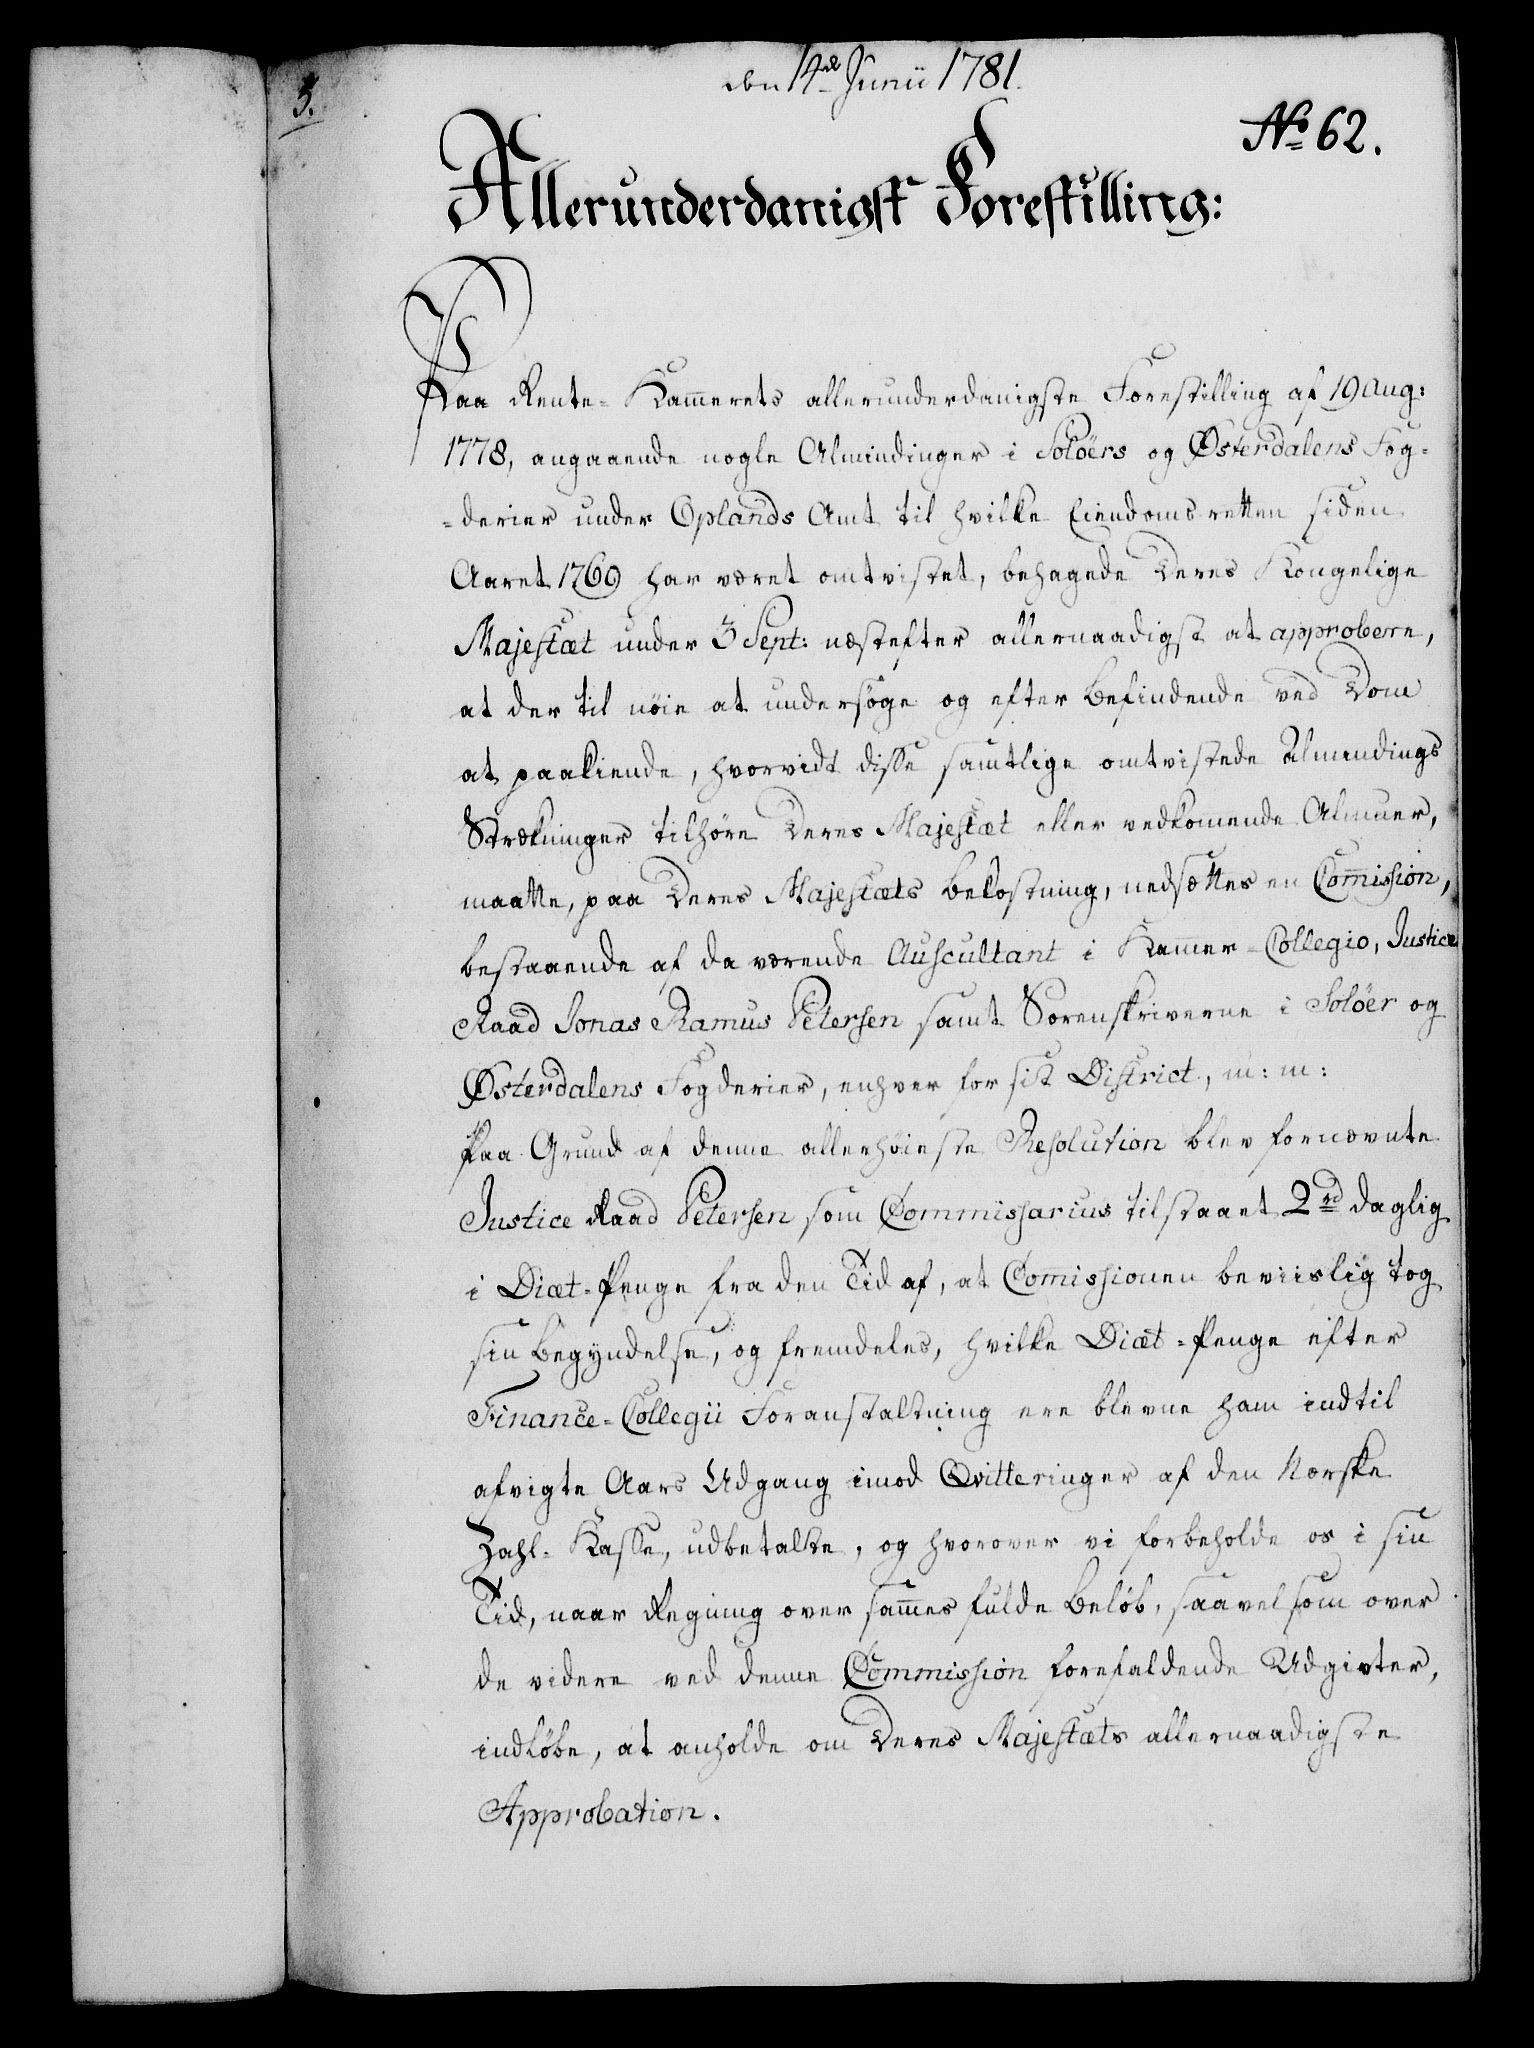 den 14de Junii 1781.
3.
No 62.
Allerunderdanigst Forestilling:
Paa Rente-Kam̄erets allerunderdanigste Forestilling af 19 Aug:
1778, angaaende nogle Almindinger i Soløers og Østerdalens Fog-
-derier under Oplands Amt til hvilke Eiendoms retten siden
Aaret 1769 har været omtvistet, behagede Deres Kongelige
Majestæt under 3 Sept: næstefter allernaadigst at approbere,
at der til nøie at undersøge og efter befindende ved Dom
at paakiende, hvorvidt disse samtlige omtvistede Almindings
Strækninger tilhøre Deres Majestæt eller vedkom̄ende Almuer,
maatte, paa Deres Majestæts bekostning, nedsættes en Com̄ission,
bestaaende af da værende Auscultant i Kam̄er-Collegio, Justice
Raad Jonas Ramus Petersen samt Sorenskriverne i Soløer og
Østerdalens Fogderier, enhver for sit District, m: m:
Paa Grund af denne allerhøieste Resolution blev fornævnte
Justice Raad Petersen som Commissarius tilstaaet 2 rd daglig
i Diæt-Penge fra den Tid af, at Com̄issionen beviislig tog
sin Begyndelse, og fremdeles, hvilke Diæt-Penge efter
Finance-Collegii Foranstaltning ere blevne ham indtil
afvigte Aars Udgang imod Qvitteringer af den Norske
Zahl-Kasse, udbetalte, og hvorover vi forbeholde os i sin
Tid, naar Regning over sam̄es fulde Beløb, saavelsom over
de videre ved denne Commission forefaldende Udgivter,
indløbe, at anholde om Deres Majestæts allernaadigste
Approbation.